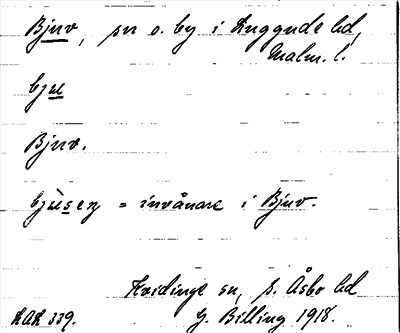 Bjuv, sn o. by i Luggude hd,
Malm. l.
bju
Bjuv.
bjùsen = invånare i Bjuv.
Kvidinge sn, s. Åsbo hd
LAL 339. G. Billing 1918.